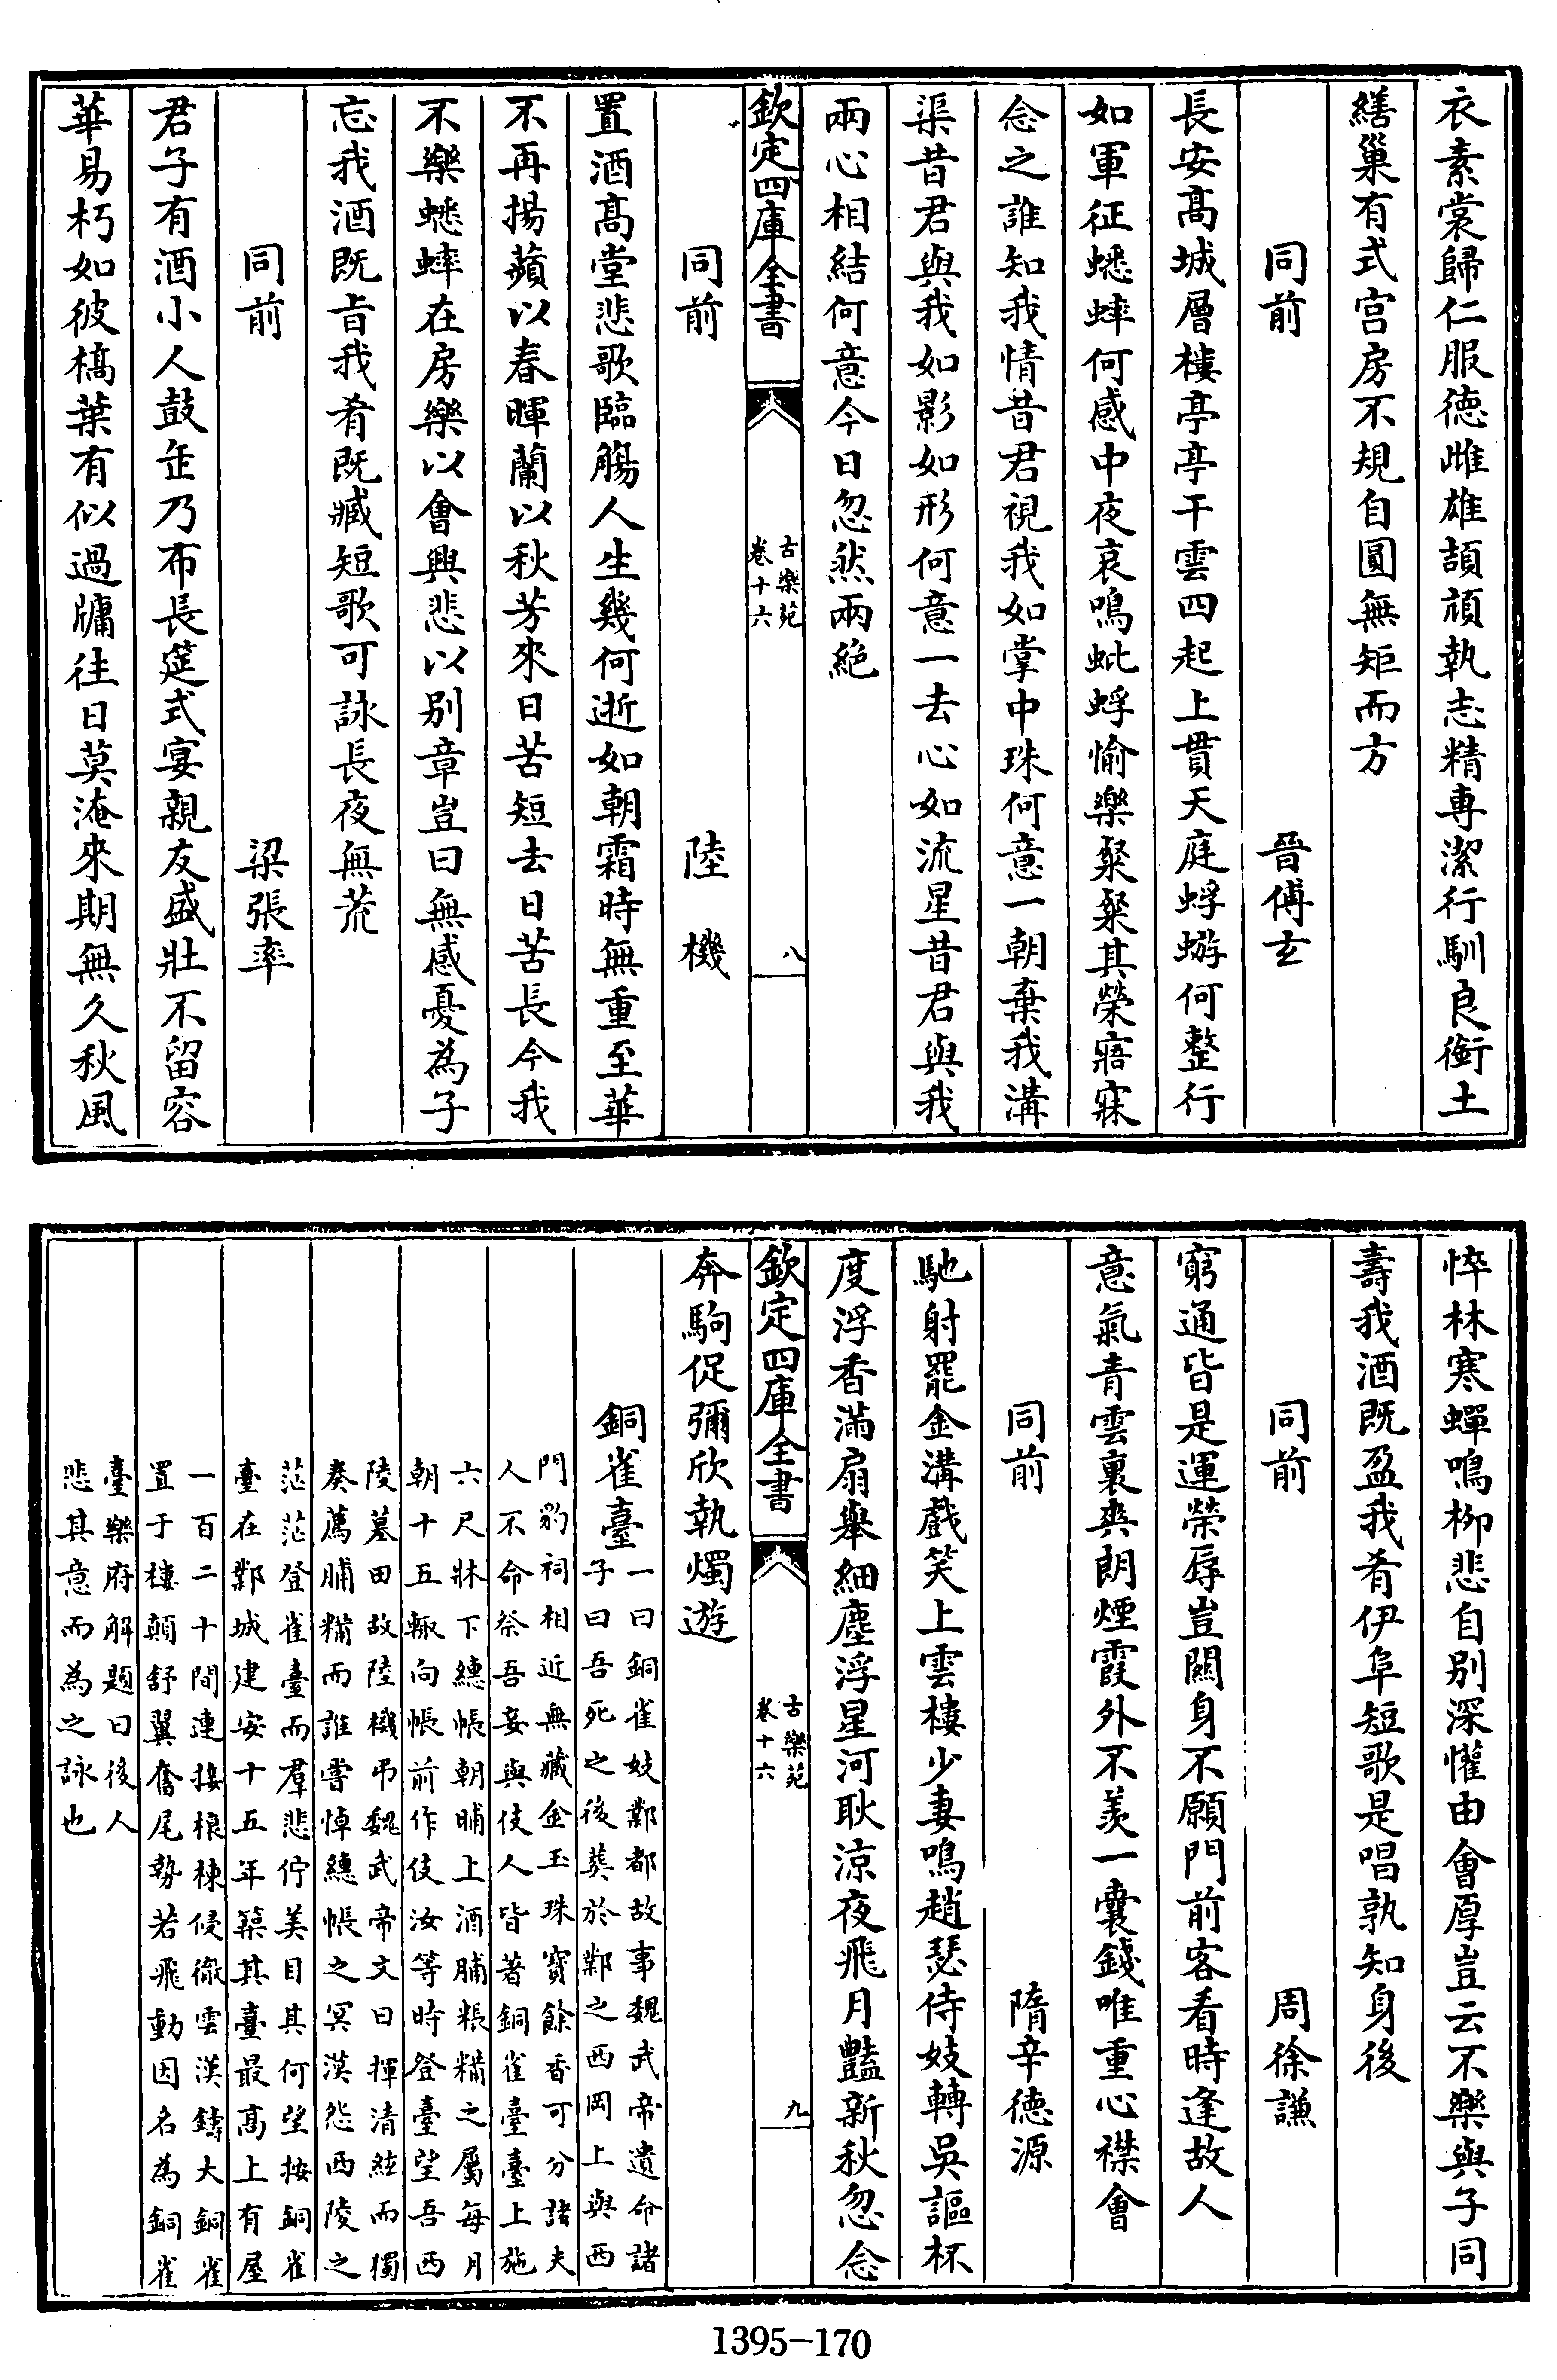 衣素裳歸仁服徳雌雄頡頏執志精専潔行馴良銜土
繕巢有式宫房不規自圓無矩而方
同前　晉傅玄
長安髙城層樓亭亭干雲四起上貫天庭蜉蝣何整行
如軍征蟋蟀何感中夜哀鳴蚍蜉愉樂粲粲其榮寤寐
念之誰知我情昔君視我如掌中珠何意一朝棄我溝
渠昔君與我如影如形何意一去心如流星昔君與我
兩心相結何意今日忽然兩絶
欽定四庫全書　古樂苑　卷十六　八
同前　陸機
置酒髙堂悲歌臨觴人生幾何逝如朝霜時無重至華
不再揚蘋以春暉蘭以秋芳來日苦短去日苦長今我
不樂蟋蟀在房樂以會興悲以别章豈曰無感憂為子
忘我酒既旨我肴既臧短歌可詠長夜無荒
同前　梁張率
君子有酒小人鼓缶乃布長筵式宴親友盛壯不留容
華易朽如彼槁葉有似過牖往日莫淹來期無久秋風
悴林寒蟬鳴柳悲自别深懽由會厚豈云不樂與子同
壽我酒既盈我肴伊阜短歌是唱孰知身後
同前　周徐謙
窮通皆是運榮辱豈關身不願門前客看時逢故人
意氣青雲裏爽朗煙霞外不羨一囊錢唯重心襟會
同前　隋辛徳源
馳射罷金溝戲笑上雲樓少妻鳴趙瑟侍妓轉吳謳杯
度浮香滿扇舉細塵浮星河耿涼夜飛月豔新秋忽念
欽定四庫全書　古樂苑　卷十六　九
奔駒促彌欣執燭遊
銅雀臺
一曰銅雀妓鄴都故事魏武帝遺命諸
子曰吾死之後葬於鄴之西岡上與西
門豹祠相近無藏金玉珠寳餘香可分諸夫
人不命祭吾妾與伎人皆著銅雀臺臺上施
六尺牀下繐帳朝晡上酒脯粻糒之屬每月
朝十五輙向帳前作伎汝等時登臺望吾西
陵墓田故陸機弔魏武帝文曰揮清絃而獨
奏薦脯糒而誰嘗悼繐帳之冥漠怨西陵之
茫茫登雀臺而羣悲佇美目其何望按銅雀
臺在鄴城建安十五年築其臺最髙上有屋
一百二十間連接榱棟侵徹雲漢鑄大銅雀
置于樓顛舒翼奮尾勢若飛動因名為銅雀
臺樂府解題曰後人
悲其意而為之詠也
1395-170